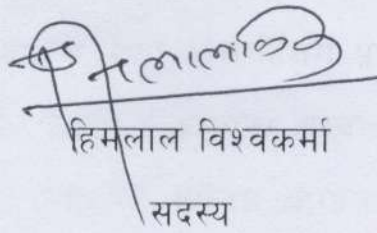 हिमलाल विश्वकर्मा
सदस्य